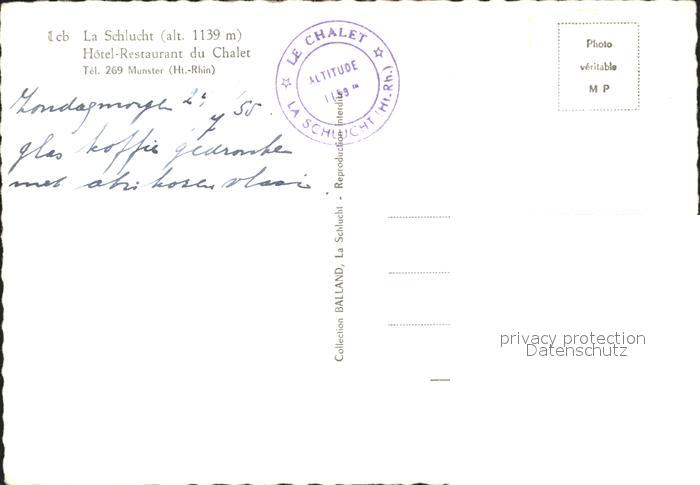 cb La Schlucht (alt. 1139 m)
Hôtel-Restaurant du Chalet
Tél. 269 Munster (Ht.-Rhin)
LE CHALET
ALTITUDE
1139 m
LA SCHLUCHT (Ht. Rh.)
Photo
véritable
M P
Zondagmorgen 7 '55.
glas koffie gedronken
met abrikozen vlaai.
Collection BALLAND, La Schlucht - Reproduction interdite
privacy protection
Datenschutz